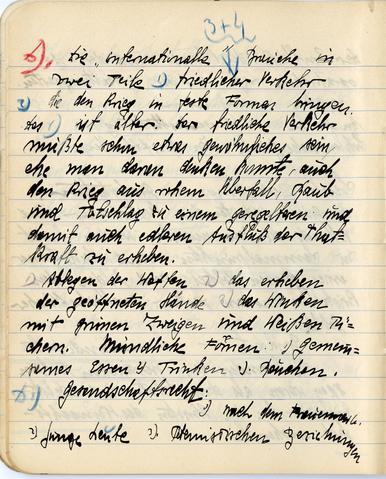 3+4
b). Die „internationalle“ Bräuche in
zwei Teile 1) friedlicher Verkehr
2) die den Krieg in feste Formen bringen.
Das 1) ist älter. Der friedliche Verkehr
mußte schon etwas gewöhnliches sein
ehe man daran denken konnte, auch
den Krieg aus rohem Überfall, Raub
und Totschlag zu einem geregelteren und
damit auch edleren Ausfluß der That-
kraft zu erheben.
1) Ablegen der Waffen 2) das erheben
der geöffneten Hände 3) das Winken
mit grünen Zweigen und Weißen Tü-
chern. Mündliche Formen: 1) gemein-
sames Essen u Trinken 2) Rauchen.
Gesandschaftsrecht:
1) nach dem
2) junge Leute 3) Beziehungen